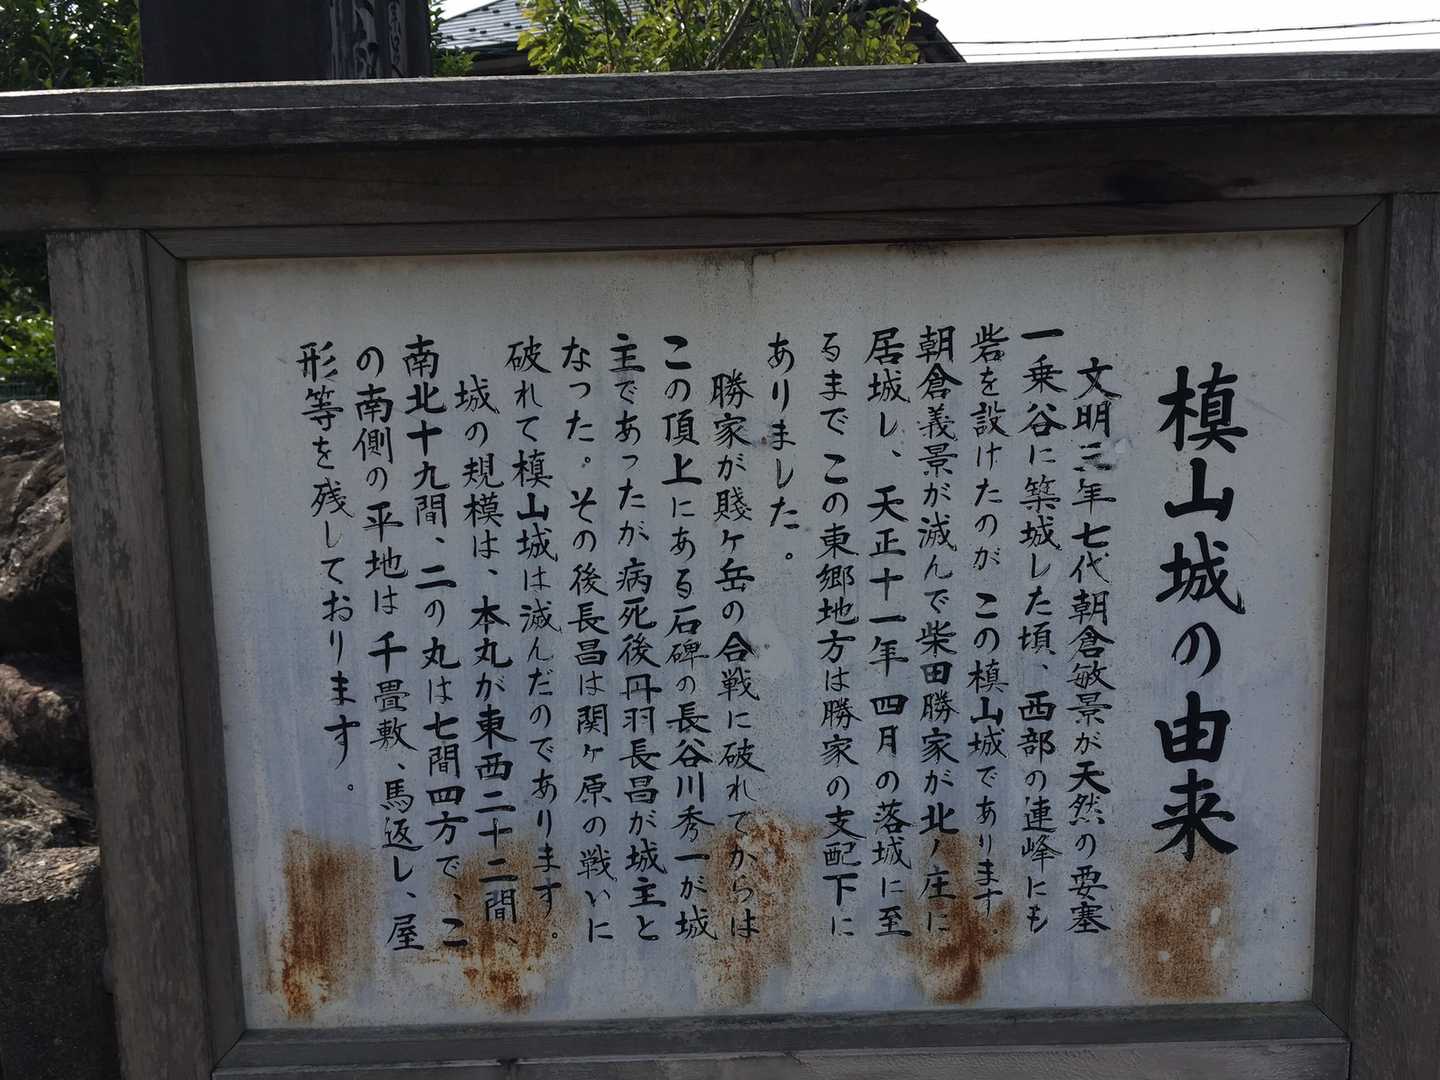 槙山城の由来
文明三年七代朝倉敏景が天然の要塞
一乗谷に築城した頃、西部の連峰にも
砦を設けたのがこの槙山城であります。
朝倉義景が滅んで柴田勝家が北ノ庄に
居城し、天正十一年四月の落城に至
るまでこの東郷地方は勝家の支配下に
ありました。
勝家が賤ヶ岳の合戦に破れてからは
この頂上にある石碑の長谷川秀一が城
主であったが病死後丹羽長昌が城主と
なった。その後長昌は関ヶ原の戦いに
破れて槙山城は滅んだのであります。
城の規模は、本丸が東西二十二間、
南北十九間、二の丸は七間四方で、こ
の南側の平地は千畳敷、馬返し、屋
形等を残しております。